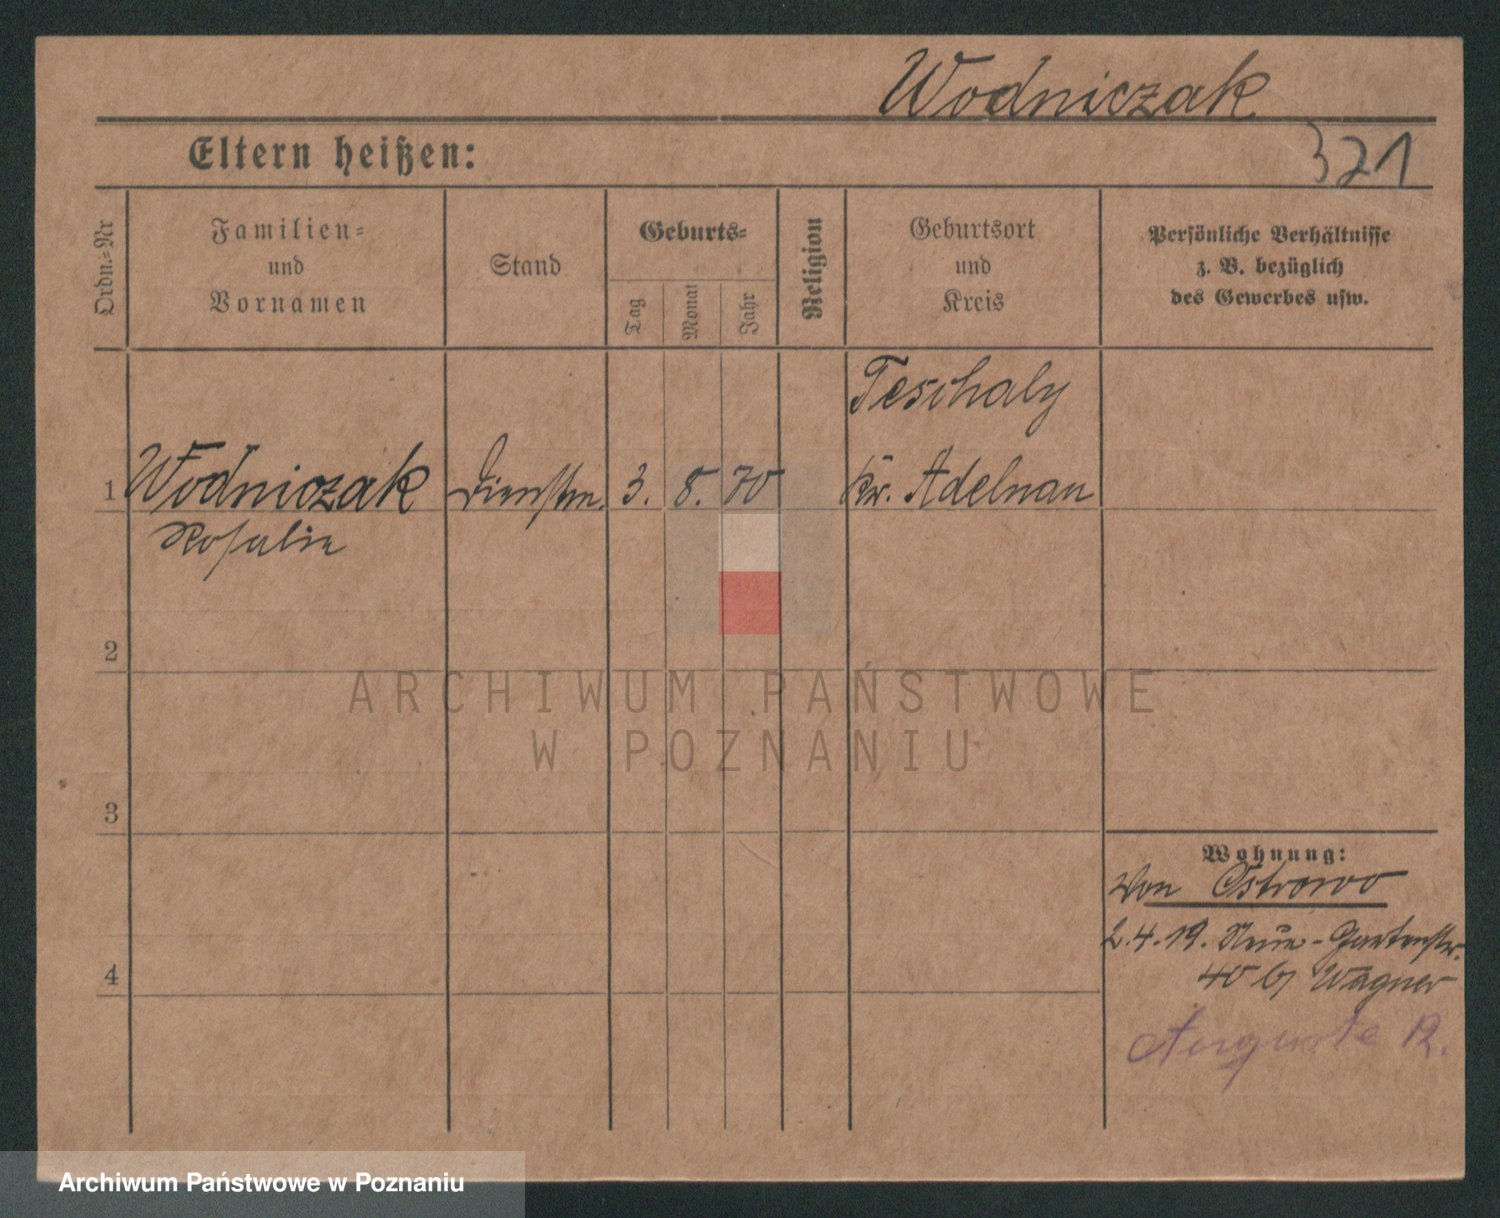 Wodniczak
321
Eltern heißen:
Ordn.-Nr
Familien-
und
Vornamen
Stand
Geburts-
Tag
Monat
Jahr
Religion
Geburtsort
und
Kreis
Persönliche Verhältnisse
z. B. bezüglich
des Gewerbes usw.
Teschaly
1 Wodniczak Dienstm. 3. 8. 70 Kr. Adelnau
Rosalie
2
ARCHIWUM PAŃSTWOWE
W POZNANIU
3
Wohnung:
Von Ostrowo
2.4.19. Neue-Gartenstr.
40 b/ Wagner
4
Auguste R.
Archiwum Państwowe w Poznaniu